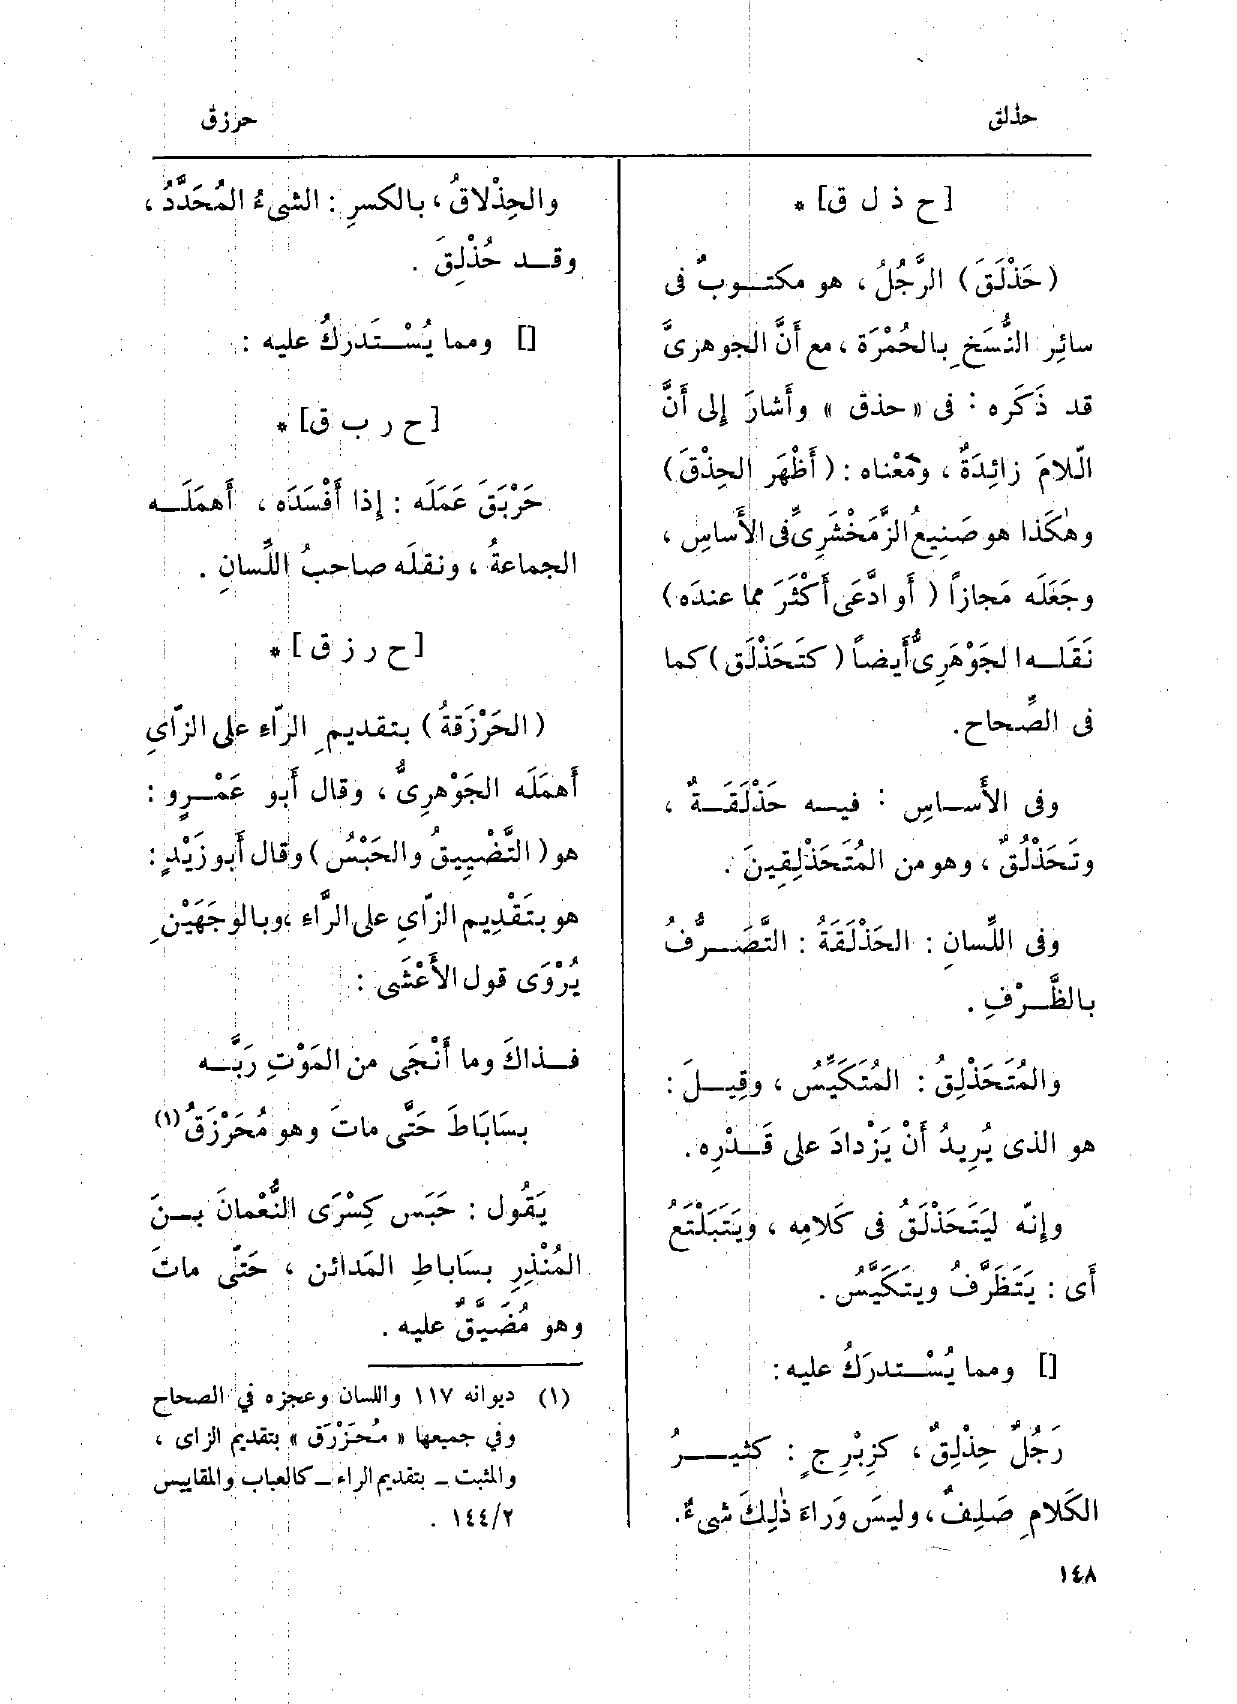 حذلق
حرزق
[ ح ذ ل ق ] *
(حَذْلَقَ) الرَّجُلُ ، هو مكتــوبٌ فى
سائِر النُّسَخِ بالحُمْرَة ، مع أَنَّ الجوهرىَّ
قد ذَكَره : فى «حذق » وأَشارَ إِلى أَنَّ
الّلامَ زائِدَةٌ ، ومَعْناه : ( أَظْهَر الحِذْقَ )
وهٰكَذا هو صَنِيعُ الزَّمَخْشَرِىِّ فى الأَساسِ ،
وجَعَلَه مَجازاً ( أَو ادَّعَى أَكْثَرَ مما عندَه )
نَقَلــه الجَوْهَرِىُّ أَيضاً ( كتَحَذْلَق ) كما
فى الصِّحاح.
وفى الأَســاسِ : فيــه حَذْلَقَــةٌ ،
وتَحَذْلُقٌ ، وهو من المُتَحَذْلِقِينَ .
وفى اللِّسانِ : الحَذْلَقَةُ : التَّصَــرُّفُ
بالظَّــرْفِ .
والمُتَحَذْلِقُ : المُتَكَيِّسُ ، وقِيــلَ :
هو الذى يُرِيدُ أَنْ يَزْدادَ على قَــدْرِه .
وإِنّه ليَتَحَذْلَقُ فى كَلامِه ، ويَتَبَلْتَعُ
أَى : يَتَظَرَّفُ ويتَكَيَّسُ .
[] ومما يُسْــتدرَكُ عليه :
رَجُلٌ حِذْلِقٌ ، كزِبْرِجٍ : كثيــرُ
الكَلامِ صَلِفٌ ، وليسَ وَراءَ ذٰلِكَ شىءٌ.
١٤٨
والحِذْلاقُ ، بالكسرِ : الشىءُ المُحَدَّدُ ،
وقــد حُذْلِقَ .
[] ومما يُسْــتَدرَكُ عليه :
[ ح ر ب ق ] *
حَرْبَقَ عَمَلَه : إِذا أَفْسَدَه ، أَهمَلَــه
الجماعةُ ، ونقلَه صاحبُ اللِّسانِ .
[ ح ر ز ق ] *
( الحَرْزَقةُ ) بتقديمِ الرّاءِ على الزّاىِ
أَهمَلَه الجَوْهرِىُّ ، وقال أَبو عَمْــرٍو :
هو ( التَّضْيِيقُ والحَبْسُ ) وقال أَبو زَيْدٍ :
هو بتَقْدِيم الزّاىِ على الرَّاء ، وبالوجَهَيْنِ
يُرْوَى قول الأَعْشَى :
فــذاكَ وما أَنْجَى من المَوْتِ رَبَّــه
بسَابَاطَ حَتَّى ماتَ وهو مُحَرْزَقُ (١)
يَقُول : حَبَس كِسْرَى النُّعْمانَ بــنَ
المُنْذِرِ بسَاباطِ المَدائن ، حَتَّى ماتَ
وهو مُضَيَّقٌ عليه .
(١) ديوانه ١١٧ واللسان وعجزه في الصحاح
وفي جميعها « مُحَزْرَق » بتقديم الزاى ،
والمثبت ــ بتقديم الراء ــ كالعباب والمقاييس
١٤٤/٢ .